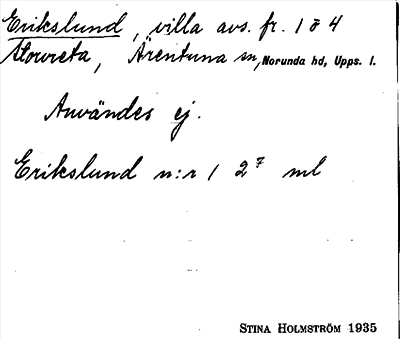 Erikslund, villa avs. fr. 1 o 4
Storvreta, Ärentuna sn, Norunda hd, Upps. l.
Användes ej.
Erikslund n:r 1 2⁷ ml
STINA HOLMSTRÖM 1935